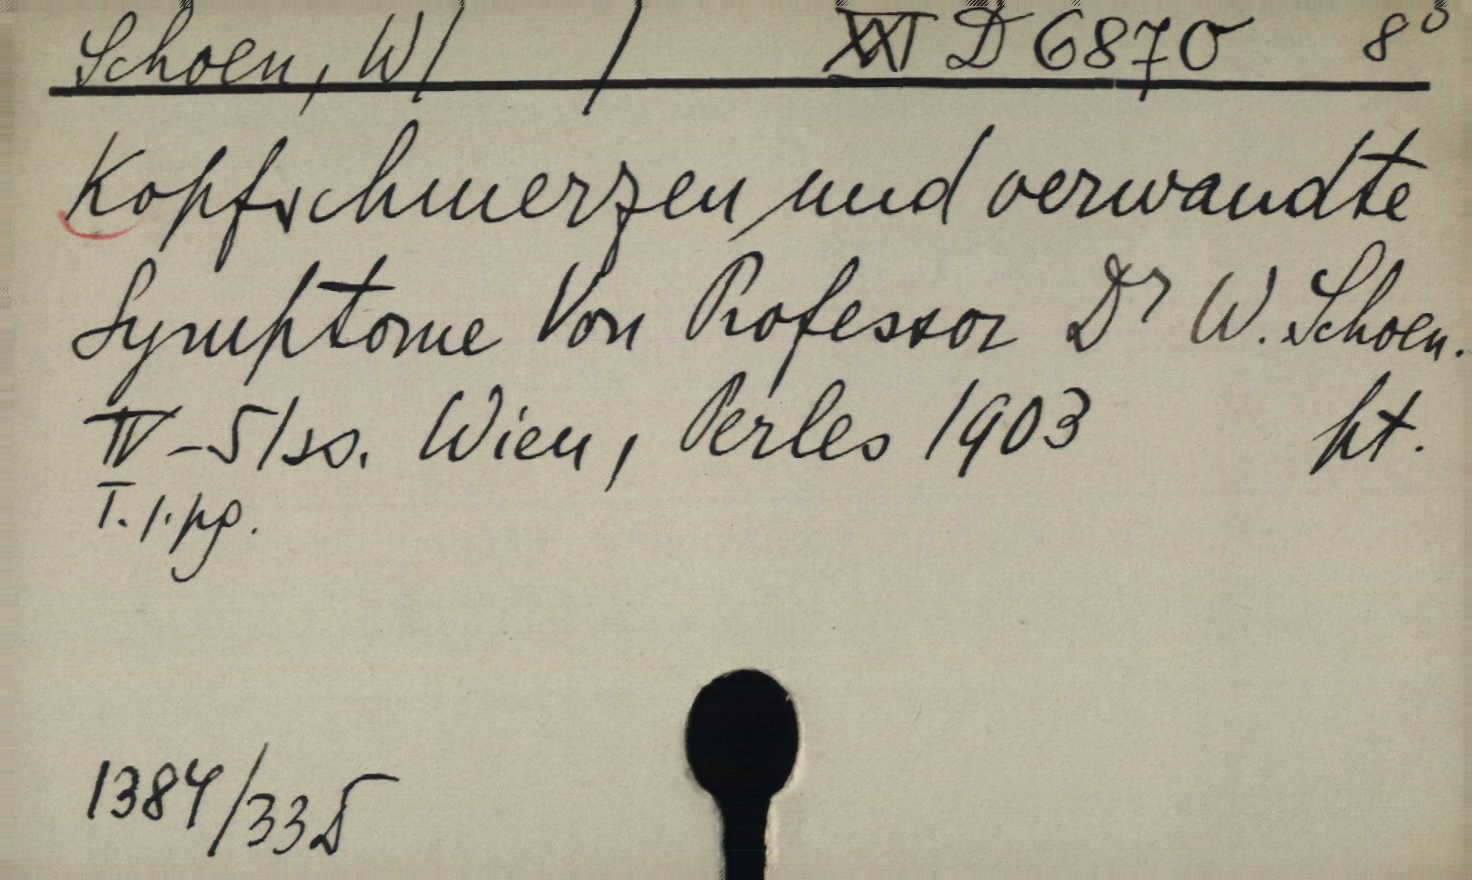 Schoen, W/ / XXI D 6870 8°
Kopfschmerzen und verwandte
Symptome Von Professor Dr W. Schoen.
IV–51 ss. Wien, Perles 1903 pt.
T. 1. pg.
1384/33 D